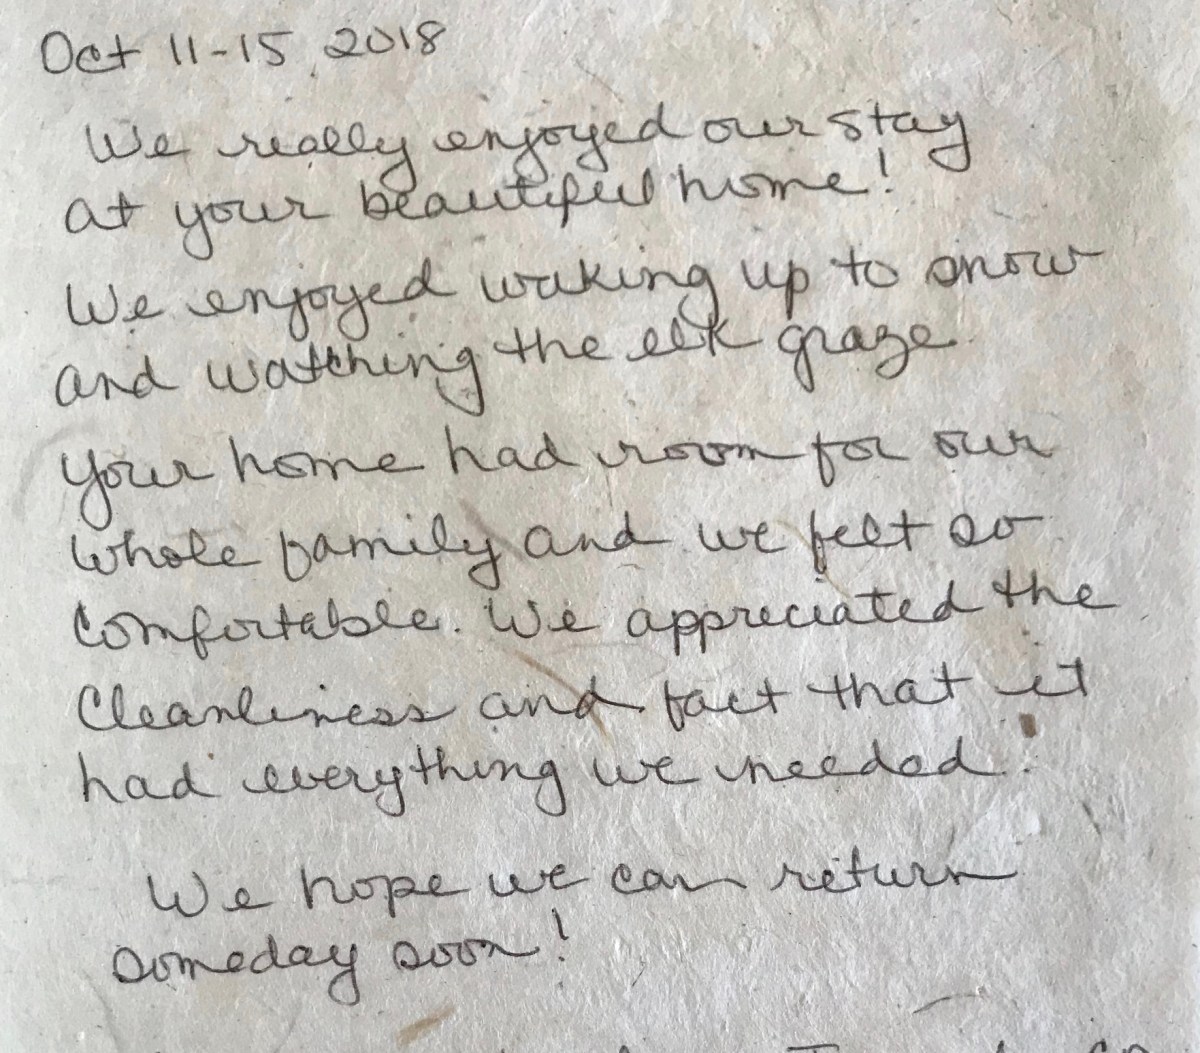 Oct 11-15, 2018
We really enjoyed our stay
at your beautiful home!
We enjoyed waking up to snow
and watching the elk graze.
Your home had room for our
whole family and we felt so
comfortable. We appreciated the
cleanliness and fact that it
had everything we needed.
We hope we can return
someday soon!